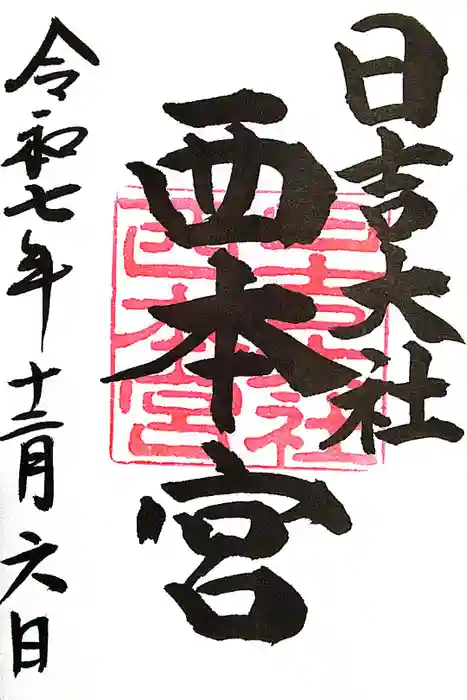 日吉大社
西本宮
令和七年十二月六日
日吉大社
西本宮